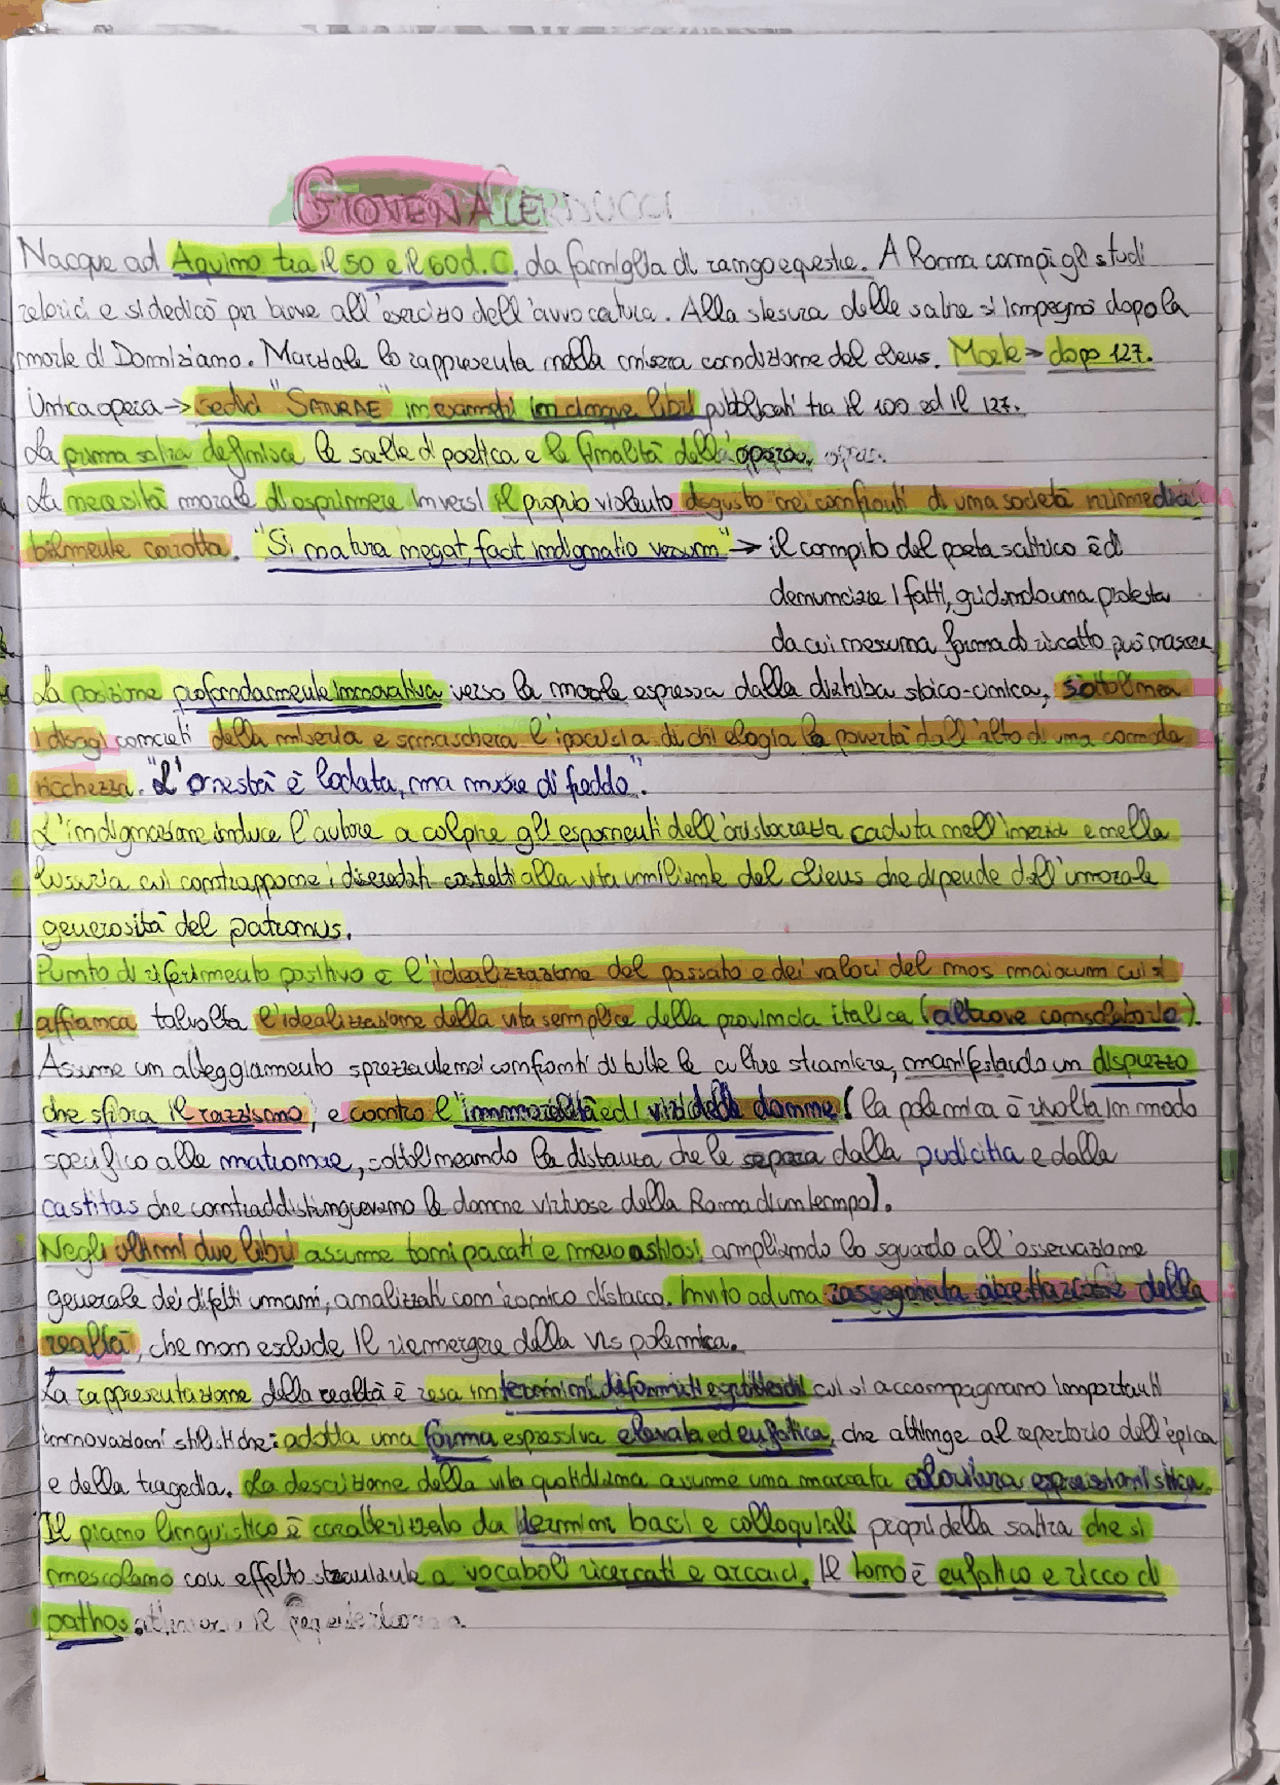 GIOVENALE
Nacque ad Aquino tra il 50 e il 60 d.C, da famiglia di rango equestre. A Roma compì gli studi
retorici e si dedicò per breve all'esercizio dell'avvocatura. Alla stesura delle satire si impegnò dopo la
morte di Domiziano. Marziale lo rappresenta nella misera condizione del cliens. Morte → dopo 127.
Unica opera → sedici "SATURAE" in esametri in cinque libri pubblicati tra il 100 ed il 127.
La prima satira definisce le scelte di poetica e le finalità dell'opera.
La necessità morale d'esprimere in versi il proprio violento disgusto nei confronti di una società irrimedia
bilmente corrotta. "Si natura negat, facit indignatio versum" → il compito del poeta satirico è di
denunciare i fatti, gridando una protesta
da cui nessuna forma di riscatto può nascere
La posizione profondamente innovativa verso la morale espressa dalla diatriba stoico-cinica, sottolinea
i disagi concreti della miseria e smaschera l'ipocrisia di chi elogia la povertà dall'alto di una comoda
ricchezza. "L'onestà è lodata, ma muore di freddo".
L'indignazione induce l'autore a colpire gli esponenti dell'aristocrazia caduta nell'inerzia e nella
lussuria cui contrappone i diseredati costretti alla vita umiliante del cliens che dipende dall'umorale
generosità del patronus.
Punto di riferimento positivo è l'idealizzazione del passato e dei valori del mos maiorum cui si
affianca talvolta l'idealizzazione della vita semplice della provincia italica (altrove consolatorio).
Assume un atteggiamento sprezzante nei confronti di tutte le culture straniere, manifestando un disprezzo
che sfiora il razzismo, e contro l'immoralità ed i vizi delle donne (la polemica è rivolta in modo
specifico alle matronae, sottolineando la distanza che le separa dalla pudicitia e dalla
castitas che contraddistinguevano le donne virtuose della Roma di un tempo).
Negli ultimi due libri assume toni pacati e meno astiosi, ampliando lo sguardo all'osservazione
generale dei difetti umani, analizzati con ironico distacco. Invito ad una rassegnata accettazione della
realtà, che non esclude il riemergere della vis polemica.
La rappresentazione della realtà è resa in termini deformati e grotteschi cui si accompagnano importanti
innovazioni stilistiche: adotta una forma espressiva elevata ed enfatica, che attinge al repertorio dell'épica
e della tragedia. La descrizione della vita quotidiana assume una marcata coloritura espressionistica.
Il piano linguistico è caratterizzato da termini bassi e colloquiali propri della satira che si
mescolano con effetto straniante a vocaboli ricercati e arcaici. Il tono è enfatico e ricco di
pathos.